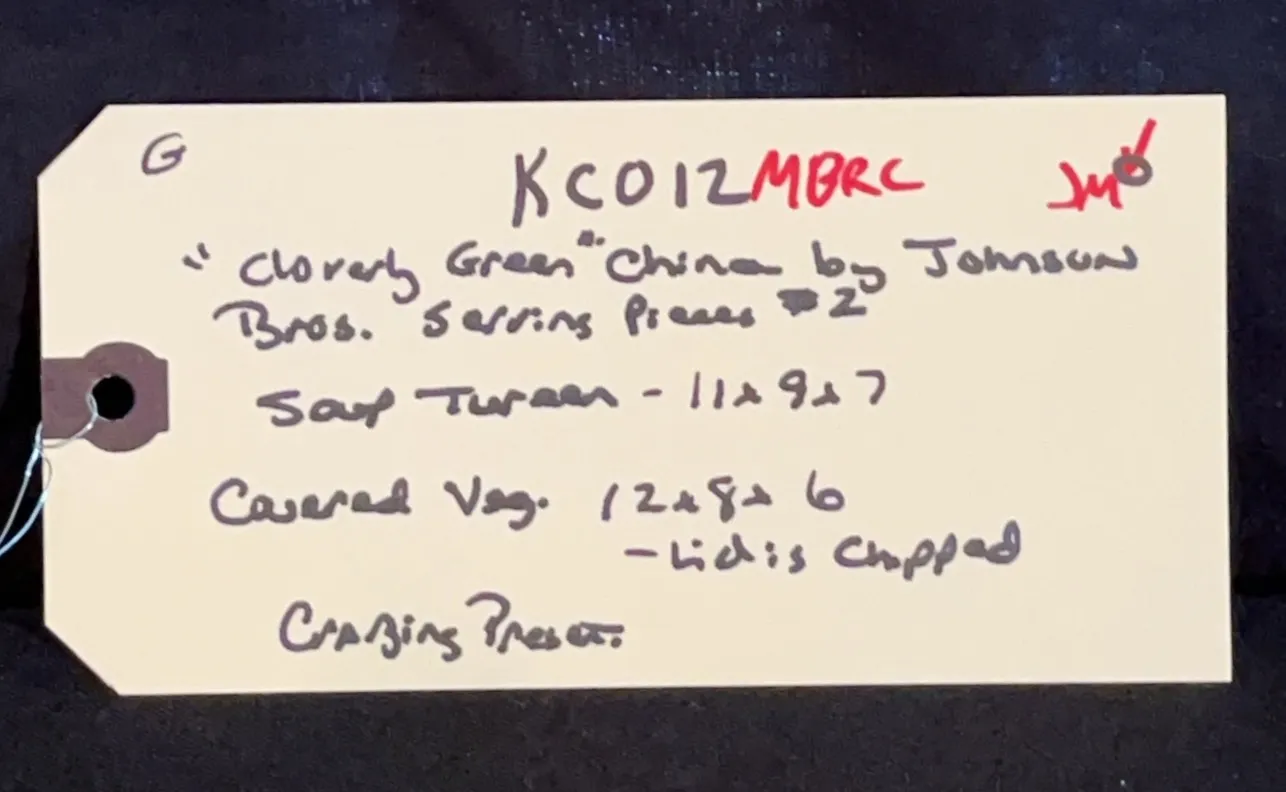 G
KC012 MBRC JM
"Cloverly Green" China by Johnson
Bros. Serving Pieces #2
Soup Tureen - 11x9x7
Covered Veg. 12x8x6
- Lid is Chipped
Crazing Present.